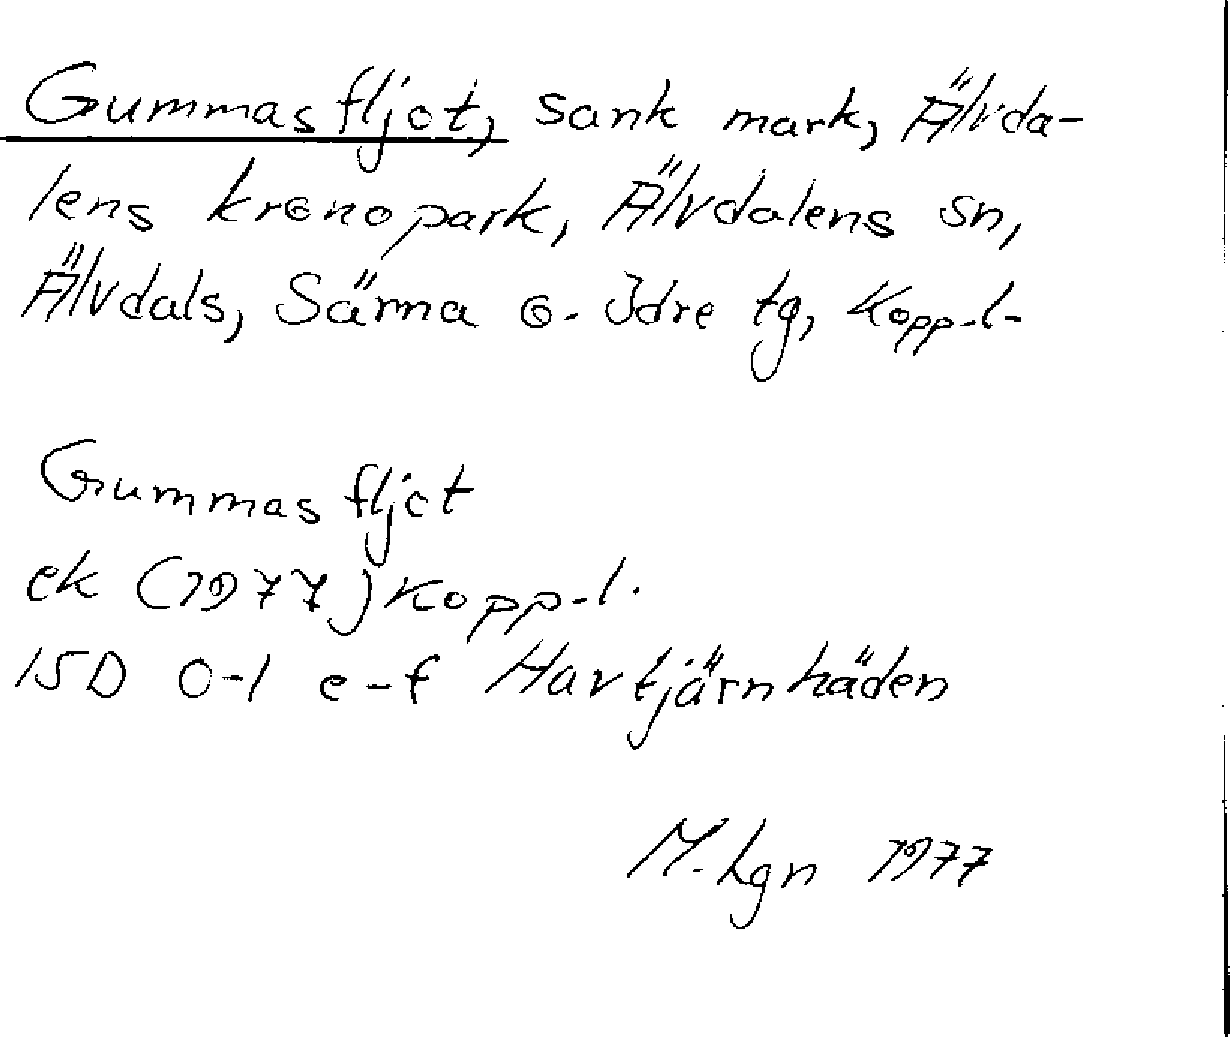 Gummasfljot, sank mark, Älvda-
lens kronopark, Älvdalens sn,
Älvdals, Särna o. Idre tg, Kopp.l.
Gummasfljot
ek (1977) Kopp.l.
15D 0-1 e-f Havtjärnhäden
M. Lgn 1977